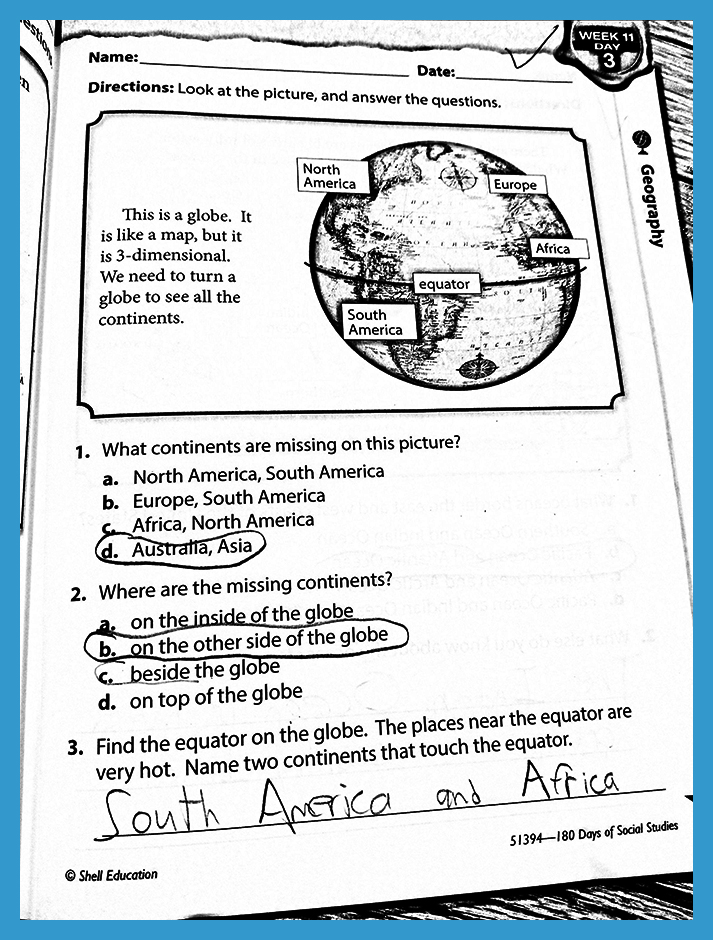 WEEK 11
DAY
3
Name:
Date:
Directions: Look at the picture, and answer the questions.
Geography
This is a globe. It
is like a map, but it
is 3-dimensional.
We need to turn a
globe to see all the
continents.
North
America
Europe
Africa
equator
South
America
1. What continents are missing on this picture?
a. North America, South America
b. Europe, South America
c. Africa, North America
d. Australia, Asia
2. Where are the missing continents?
a. on the inside of the globe
b. on the other side of the globe
c. beside the globe
d. on top of the globe
3. Find the equator on the globe. The places near the equator are
very hot. Name two continents that touch the equator.
South America and Africa
51394—180 Days of Social Studies
© Shell Education